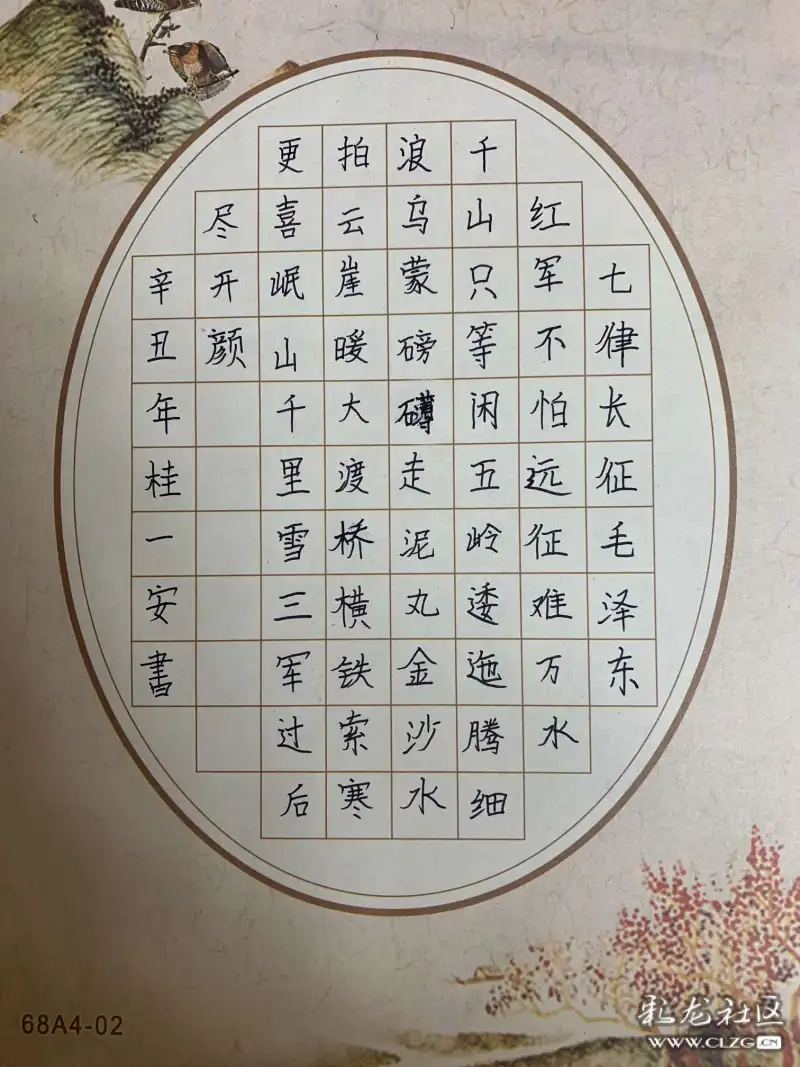 七律长征毛泽东
红军不怕远征难万水
千山只等闲五岭逶迤腾细
浪乌蒙磅礴走泥丸金沙水
拍云崖暖大渡桥横铁索寒
更喜岷山千里雪三军过后
尽开颜
辛丑年桂一安書
68A4-02
彩龙社区
WWW.CLZG.CN